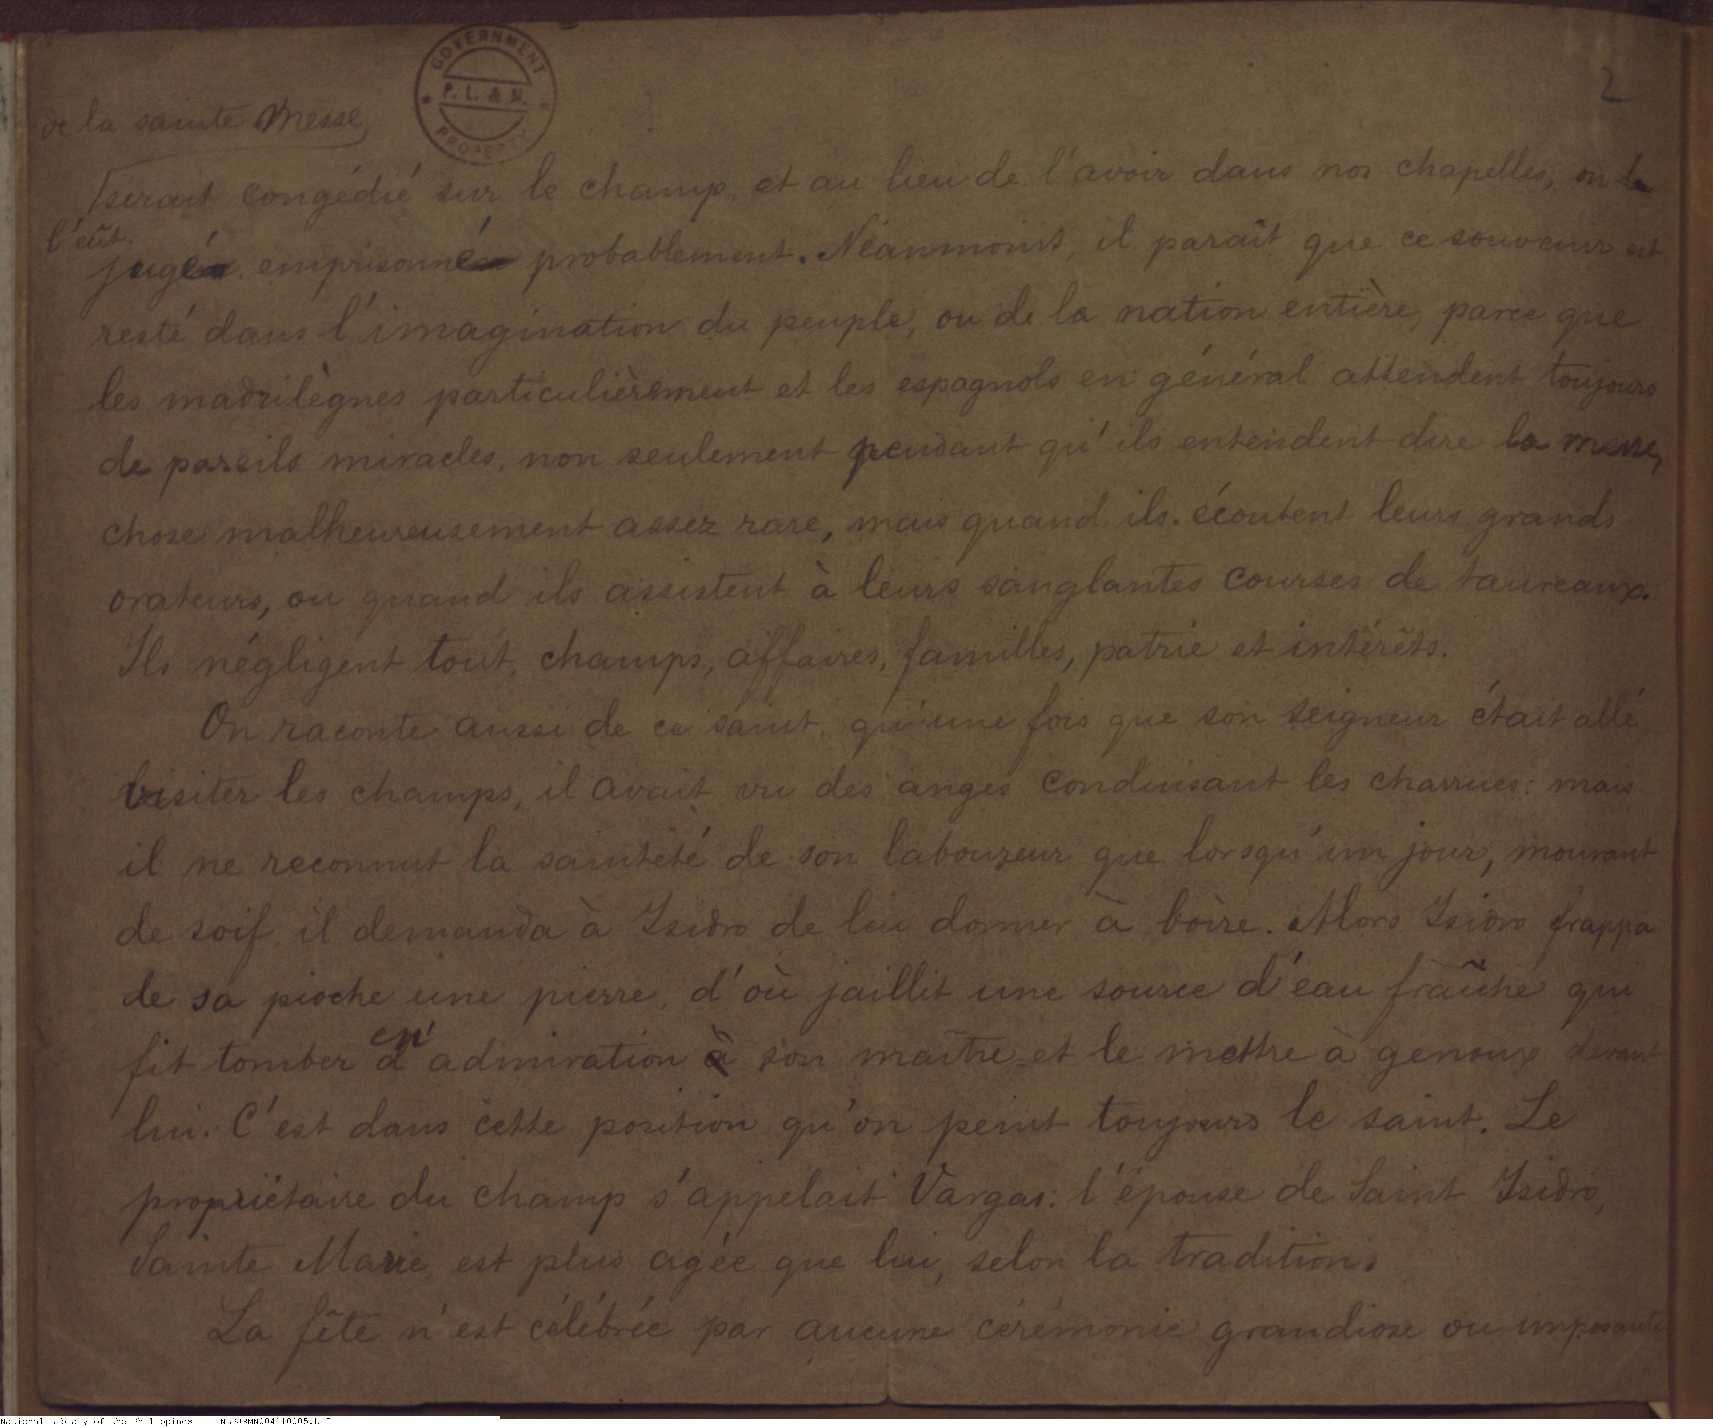 2
GOVERNMENT
P. L. & M.
PROPERTY
de la sainte Messe,
serait congédié sur le champ, et au lieu de l'avoir dans nos chapelles, on
l'eût
jugé emprisonné probablement. Néanmonist, il paraît que ce souvenir est
resté dans l'imagination du peuple, ou de la nation entière, parce que
les madrilègnes particulièrement et les espagnols en général attendent toujours
de pareils miracles, non seulement pendant qu'ils entendent dire la messe,
chose malheureusement assez rare, mais quand ils écoutent leurs grands
orateurs, ou quand ils assistent à leurs sanglantes courses de taureaux.
Ils négligent tout, champs, affaires, familles, patrie et intérêts.
On raconte aussi de ce saint, qu'une fois que son seigneur était allé
visiter les champs, il avait vu des anges conduisant les charrues: mais
il ne reconnut la sainteté de son laboureur que lorsqu'un jour, mourant
de soif, il demanda à Isidro de lui donner à boire. Alors Isidro frappa
de sa pioche une pierre, d'où jaillit une source d'eau fraîche qui
en
fit tomber d'admiration à son maître et le mettre à genoux devant
lui. C'est dans cette position qu'on peint toujours le saint. Le
propriétaire du champ s'appelait Vargas: l'épouse de Saint Isidro,
Sainte Marie, est plus agée que lui, selon la tradition.
La fête n'est célébrée par aucune cérémonie grandiose ou imposante